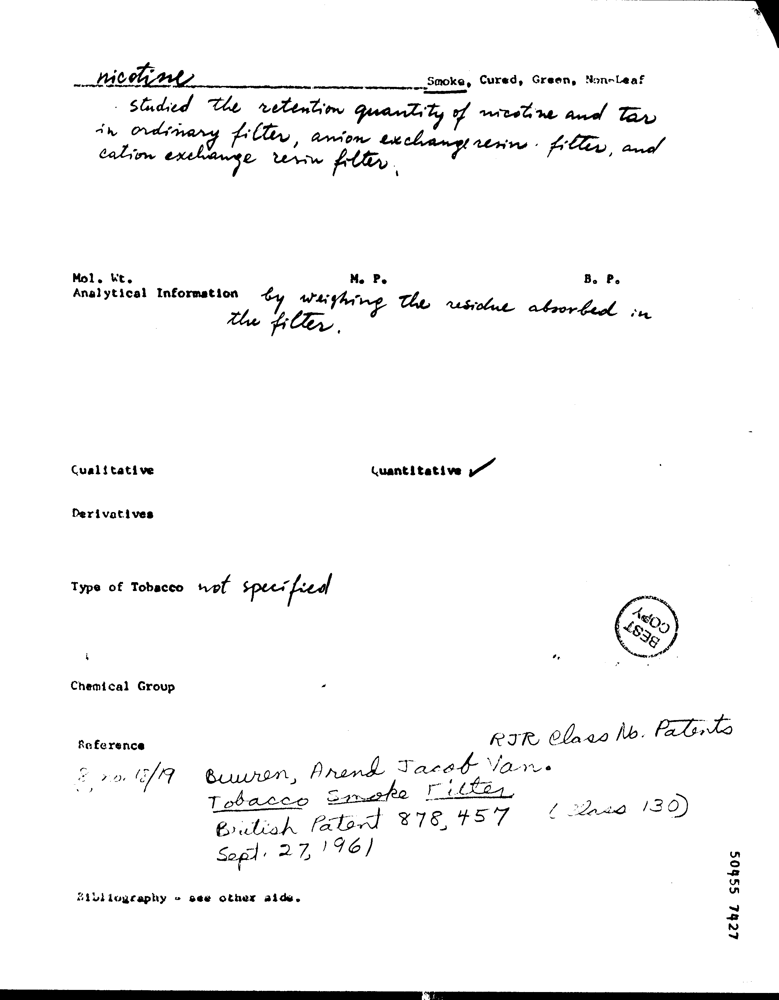 nicotine Smoke, Cured, Green, Non-Leaf
studied the retention quantity of nicotine and tar
in ordinary filter, anion exchange resin filter, and
cation exchange resin filter.
Mol. Wt. M. P. B. P.
Analytical Information by weighing the residue absorbed in
the filter.
Qualitative Quantitative ✓
Derivatives
Type of Tobacco not specified
BEST
COPY
Chemical Group
RJR Class No. Patents
Reference
18/19 Buuren, Arend Jacob Van.
Tobacco Smoke Filter
British Patent 878,457 (Class 130)
Sept. 27, 1961
Bibliography - see other side.
50955 7427